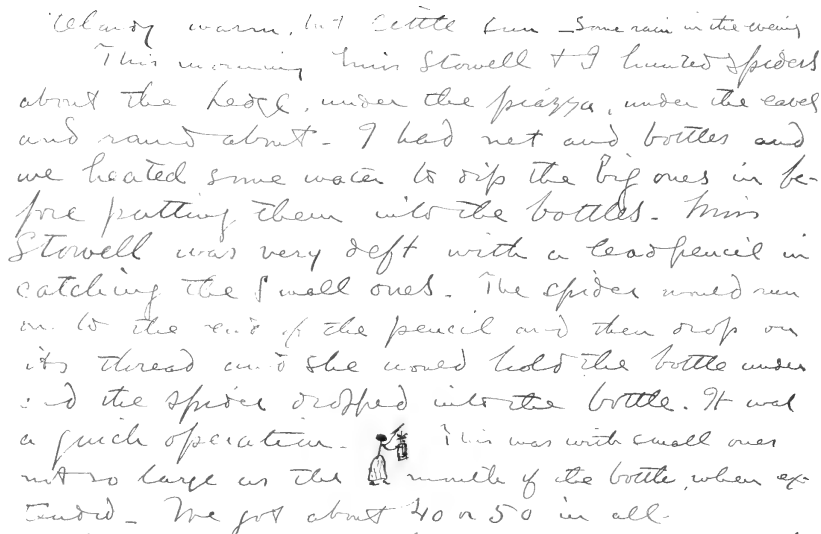 Cloudy warm, but little sun - Some rain in the evening
This morning Miss Stowell & I hunted spiders
about the hedge, under the piazza, under the eaves
and round about - I had net and bottles and
we heated some water to dip the big ones in be-
fore putting them into the bottles - Miss
Stowell was very deft with a leadpencil in
catching the small ones. The spider would run
on to the end of the pencil and then drop on
its thread and she would hold the bottle under
and the spider dropped into the bottle. It was
a quick operation. This was with small ones
not so large as the mouth of the bottle, when ex-
tended - We got about 40 or 50 in all.